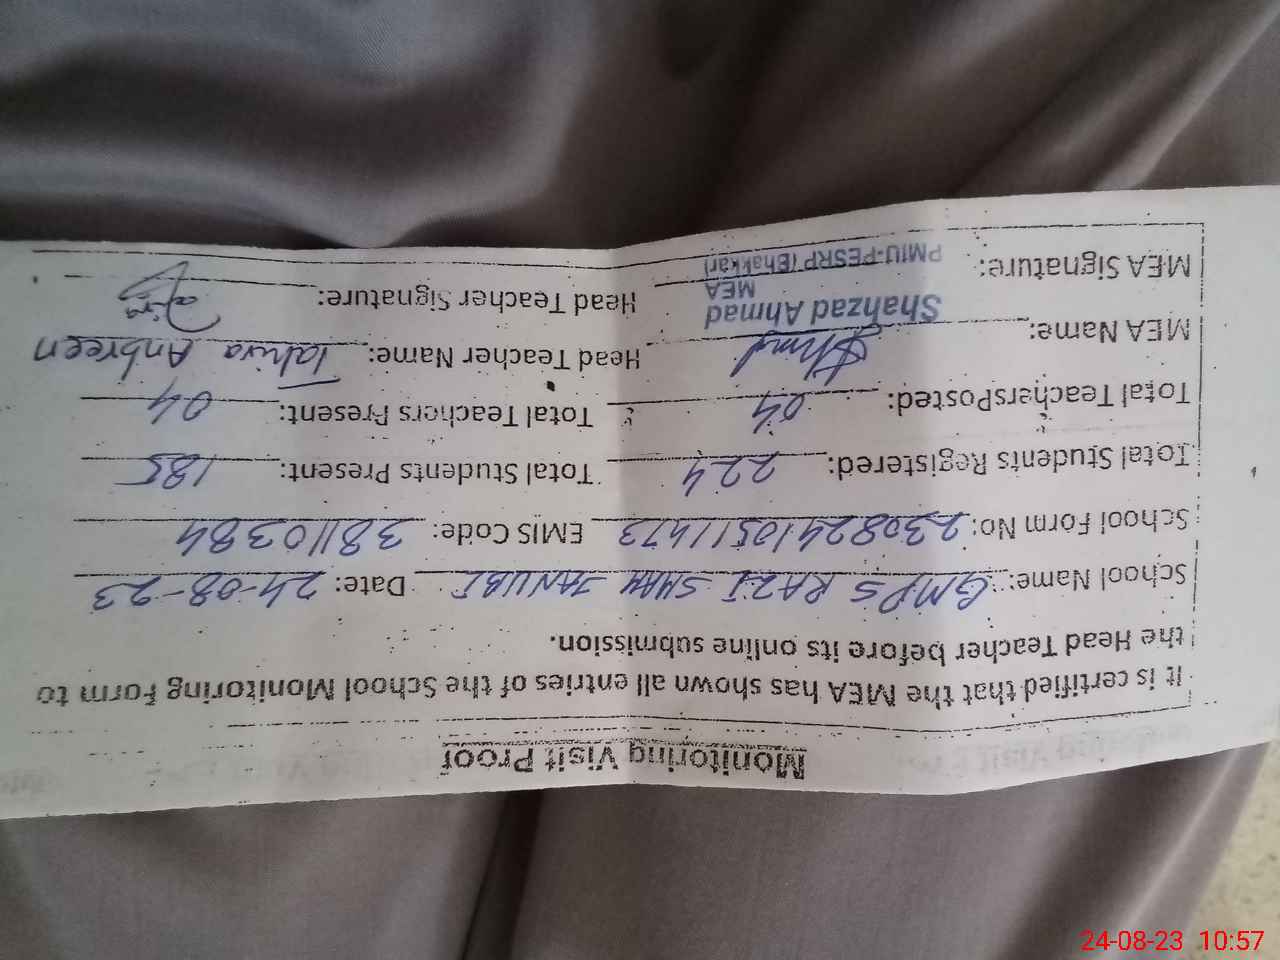 Monitoring Visit Proof
It is certified that the MEA has shown all entries of the School Monitoring Form to
the Head Teacher before its online submission.
School Name: GMPS RAZI SHAH JANUBI Date: 24-08-23
School Form No: 23082410511473 EMIS Code: 38110384
Total Students Registered: 224 Total Students Present: 185
Total TeachersPosted: 04 Total Teachers Present: 04
MEA Name: Head Teacher Name: Tahira Anbreen
Shahzad Ahmad
MEA
MEA Signature: Head Teacher Signature:
PMIU-PESRP (Bhakkar)
24-08-23 10:57